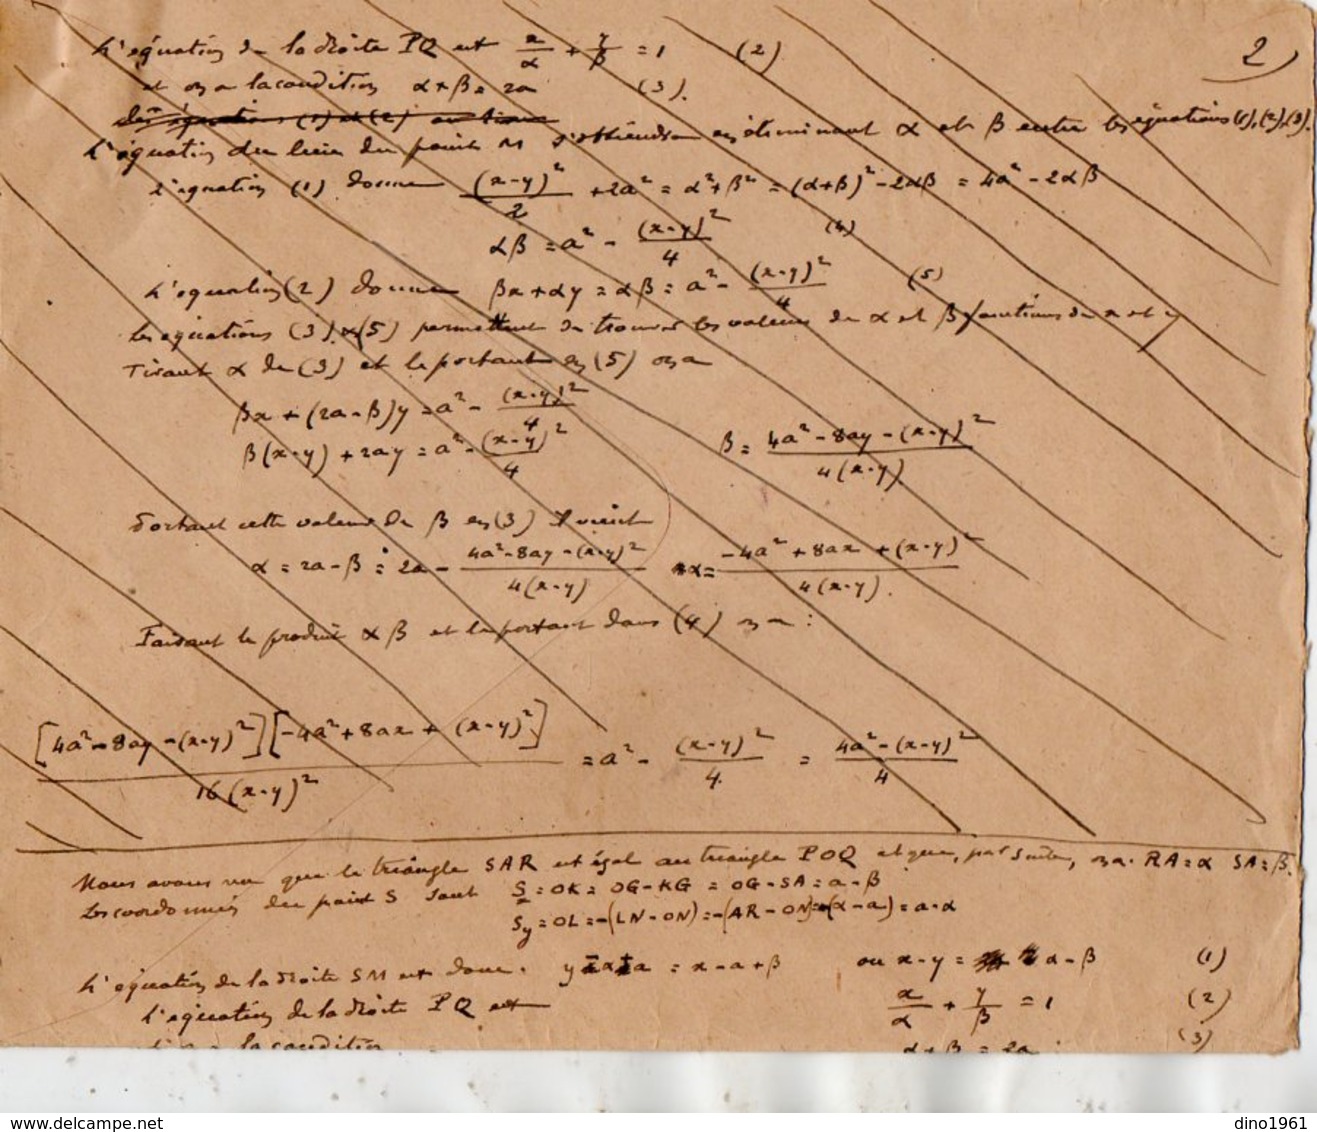 2)
L'équation de la droite PQ est x/α + y/β = 1 (2)
et on a la condition α+β = 2a (3).
Les équations (1) et (2)
L'équation du lieu du point M s'obtiendra en éliminant α et β entre les équations (1), (2), (3).
L'équation (1) donne (x-y)²/2 + 2a² = α²+β² = (α+β)² - 2αβ = 4a² - 2αβ
αβ = a² - (x-y)²/4 (4)
L'équation (2) donne βx + αy = αβ = a² - (x-y)²/4 (5)
Les équations (3) & (5) permettent de trouver les valeurs de α et β fonctions de x et y
Tirant α de (3) et le portant en (5) on a
βx + (2a-β)y = a² - (x-y)²/4
β(x-y) + 2ay = a² - (x-y)²/4 β = 4a² - 8ay - (x-y)²/4(x-y)
Portant cette valeur de β en (3) il vient
α = 2a - β = 2a - 4a²-8ay-(x-y)²/4(x-y) α = -4a² + 8ax + (x-y)²/4(x-y).
Faisant le produit αβ et le portant dans (4) on a :
[4a²-8ay-(x-y)²][-4a²+8ax+(x-y)²]/16(x-y)² = a² - (x-y)²/4 = 4a²-(x-y)²/4
Nous avons vu que le triangle SAR est égal au triangle POQ et que, par suite, on a. RA = α SA = β.
Les coordonnées du point S sont Sx = OK = OG-KG = OG-SA = a-β
Sy = OL = -(LN-ON) = -(AR-ON) = -(α-a) = a-α
L'équation de la droite SM est donc. y-a+α = x-a+β ou x-y = α-β (1)
L'équation de la droite PQ est x/α + y/β = 1 (2)
la condition α+β = 2a (3)
dino1961